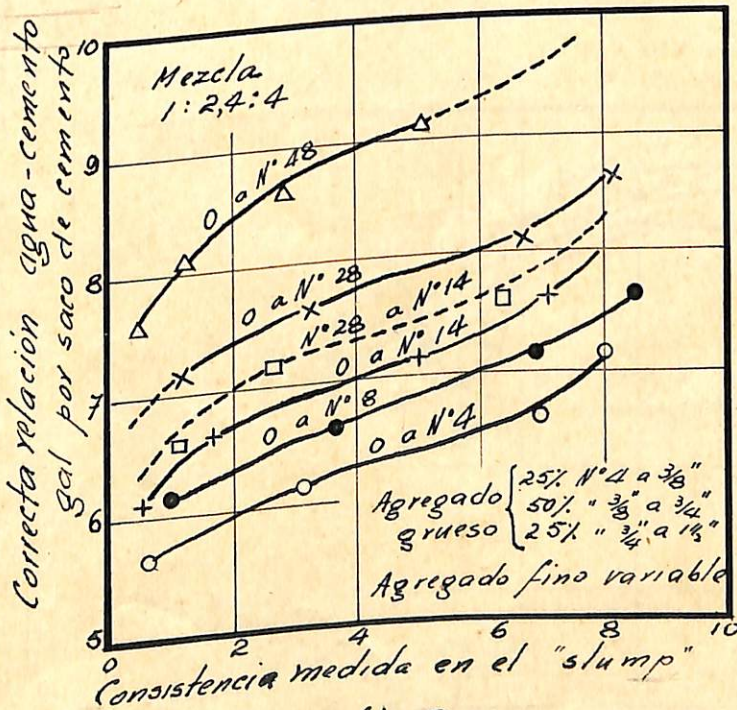 Correcta relación agua-cemento
gal por saco de cemento
10
9
8
7
6
5
Mezcla
1:2,4:4
0 a N° 48
0 a N° 28
N° 28 a N° 14
0 a N° 14
0 a N° 8
0 a N° 4
Agregado grueso
25% N° 4 a 3/8"
50% " 3/8" a 3/4"
25% " 3/4" a 1½"
Agregado fino variable
0 2 4 6 8 10
Consistencia medida en el "slump"